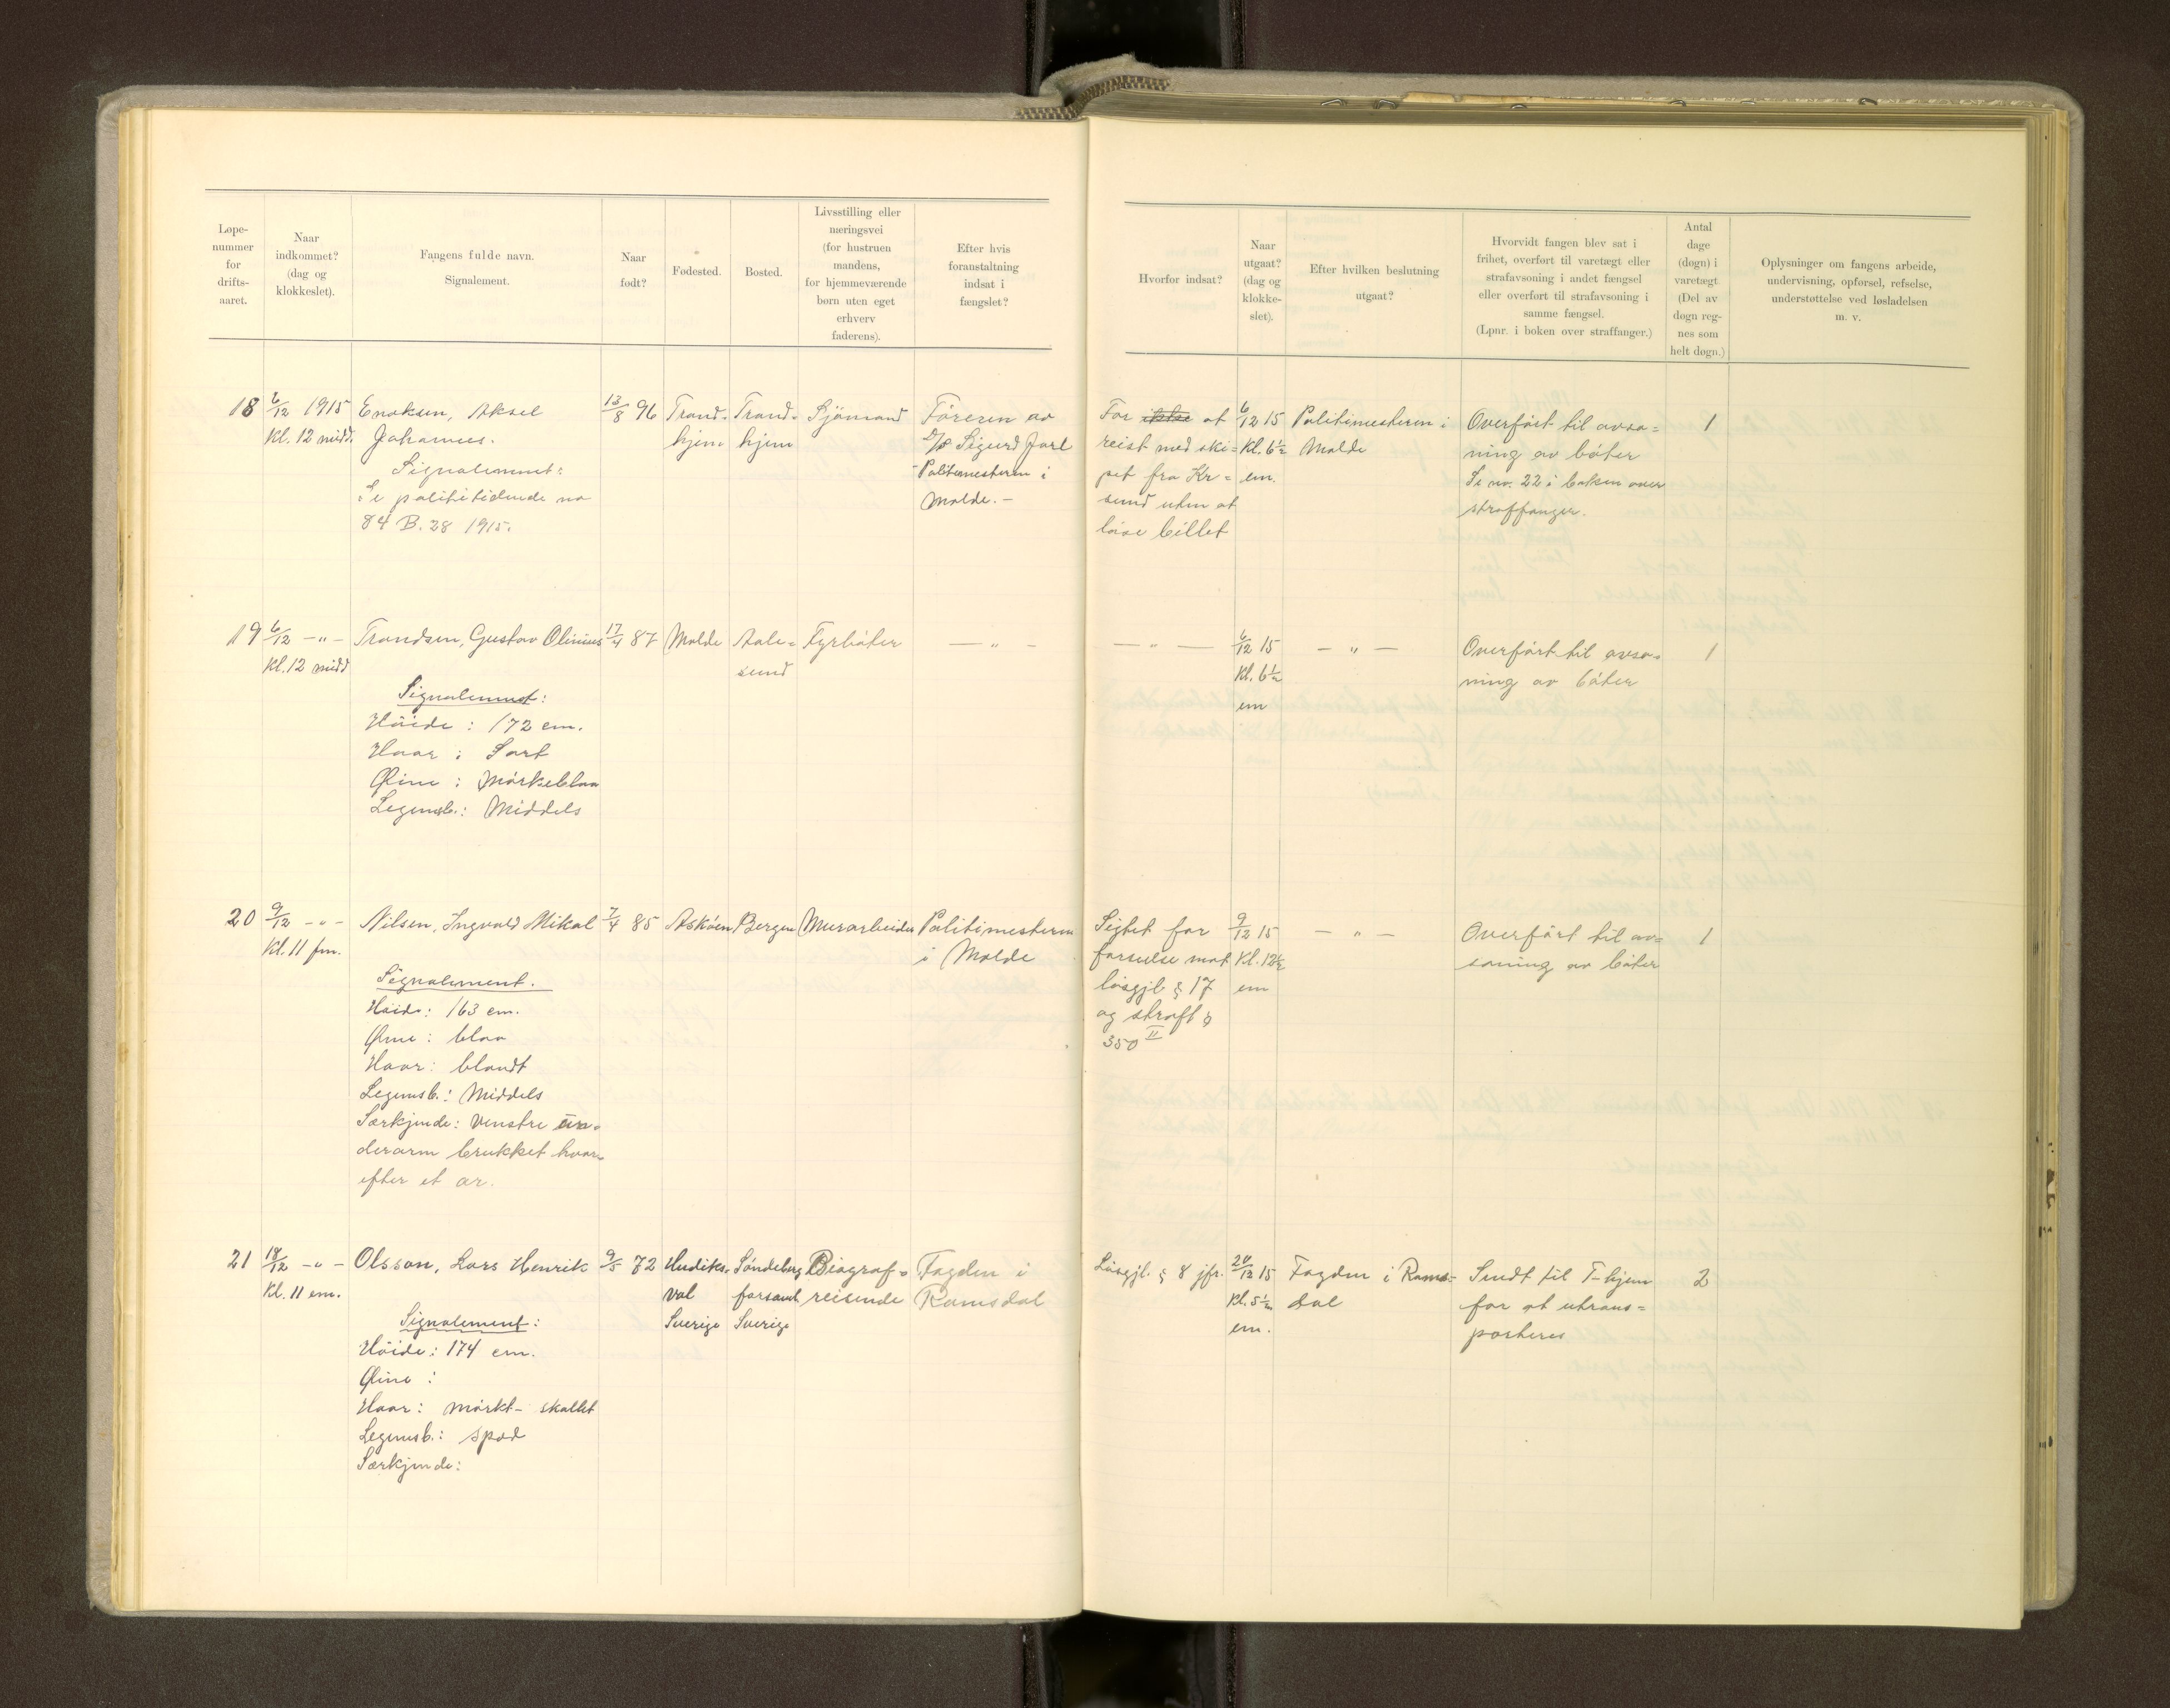 Løpe-
nummer
for
drifts-
aaret.
Naar
indkommet?
(dag og
klokkeslet).
Fangens fulde navn.
Signalement.
Naar
født?
Fødested.
Bosted.
Livsstilling eller
næringsvei
(for hustruen
mandens,
for hjemmeværende
børn uten eget
erhverv
faderens).
Efter hvis
foranstaltning
indsat i
fængslet?
Hvorfor indsat?
Naar
utgaat?
(dag og
klokke-
slet).
Efter hvilken beslutning
utgaat?
Hvorvidt fangen blev sat i
frihet, overført til varetægt eller
strafavsoning i andet fængsel
eller overført til strafavsoning i
samme fængsel.
(Lpnr. i boken over straffanger.)
Antal
dage
(døgn) i
varetægt
(Del av
døgn reg-
nes som
helt døgn.)
Oplysninger om fangens arbeide,
undervisning, opførsel, refselse,
understøttelse ved løsladelsen
m. v.
18
6/12 1915
Kl. 12 midd.
Enoksen, Aksel
Johannes.
Signalement:
Se polititidende no
84 B. 28 1915.
13/8 96
Trond-
hjem
Trond-
hjem
Sjömand
Föreren av
D/S Sigurd Jarl
Politimesteren i
Molde. -
For ikke at
reist med ski=
pet fra Kr=
sund uten at
löse billet
6/12 15
Kl. 6½
em.
Politimesteren i
Molde
Overfört til avso=
ning av böter
Se no. 22 i boken over
straffanger.
1
19
6/12 - " -
Kl. 12 midd
Trondsen, Gustav Olinius
Signalement:
Höide: 172 cm.
Haar: Sort
Øine: Mörkeblaa
Legemsb.: Middels
17/4 87
Molde
Aale=
sund
Fyrböter
- " -
- " -
6/12 15
Kl. 6½
em
- " -
Overfört til avso=
ning av böter
1
20
9/12 - " -
Kl. 11 fm.
Nilsen, Ingvald Mikal
Signalement.
Höide: 163 cm.
Øine: blaa
Haar: blondt
Legemsb.: Middels
Særkjende: Venstre un=
derarm brukket hvor=
efter et ar.
7/4 85
Asköen
Bergen
Murarbeider
Politimesteren
i Molde
Sigtet for
forseelse mot
lösgjl § 17
og straffl §
350 II
9/12 15
Kl. 12½
em
- " -
Overfört til av=
soning av böter
1
21
18/12 - " -
Kl. 11 em.
Olsson, Lars Henrik
Signalement:
Höide: 174 cm.
Øine:
Haar: mörkt - skallet
Legemsb.: spæd
Særkjende:
9/5 72
Hudiks-
val
Sverige
Söndeborg
forsaml
Sverige
Biograf=
reisende
Fogden i
Romsdal
Lösgjl. § 8 jfr.
20/12 15
Kl. 5½
em.
Fogden i Roms=
dal
Sendt til T-hjem
for at utrans=
porteres
2